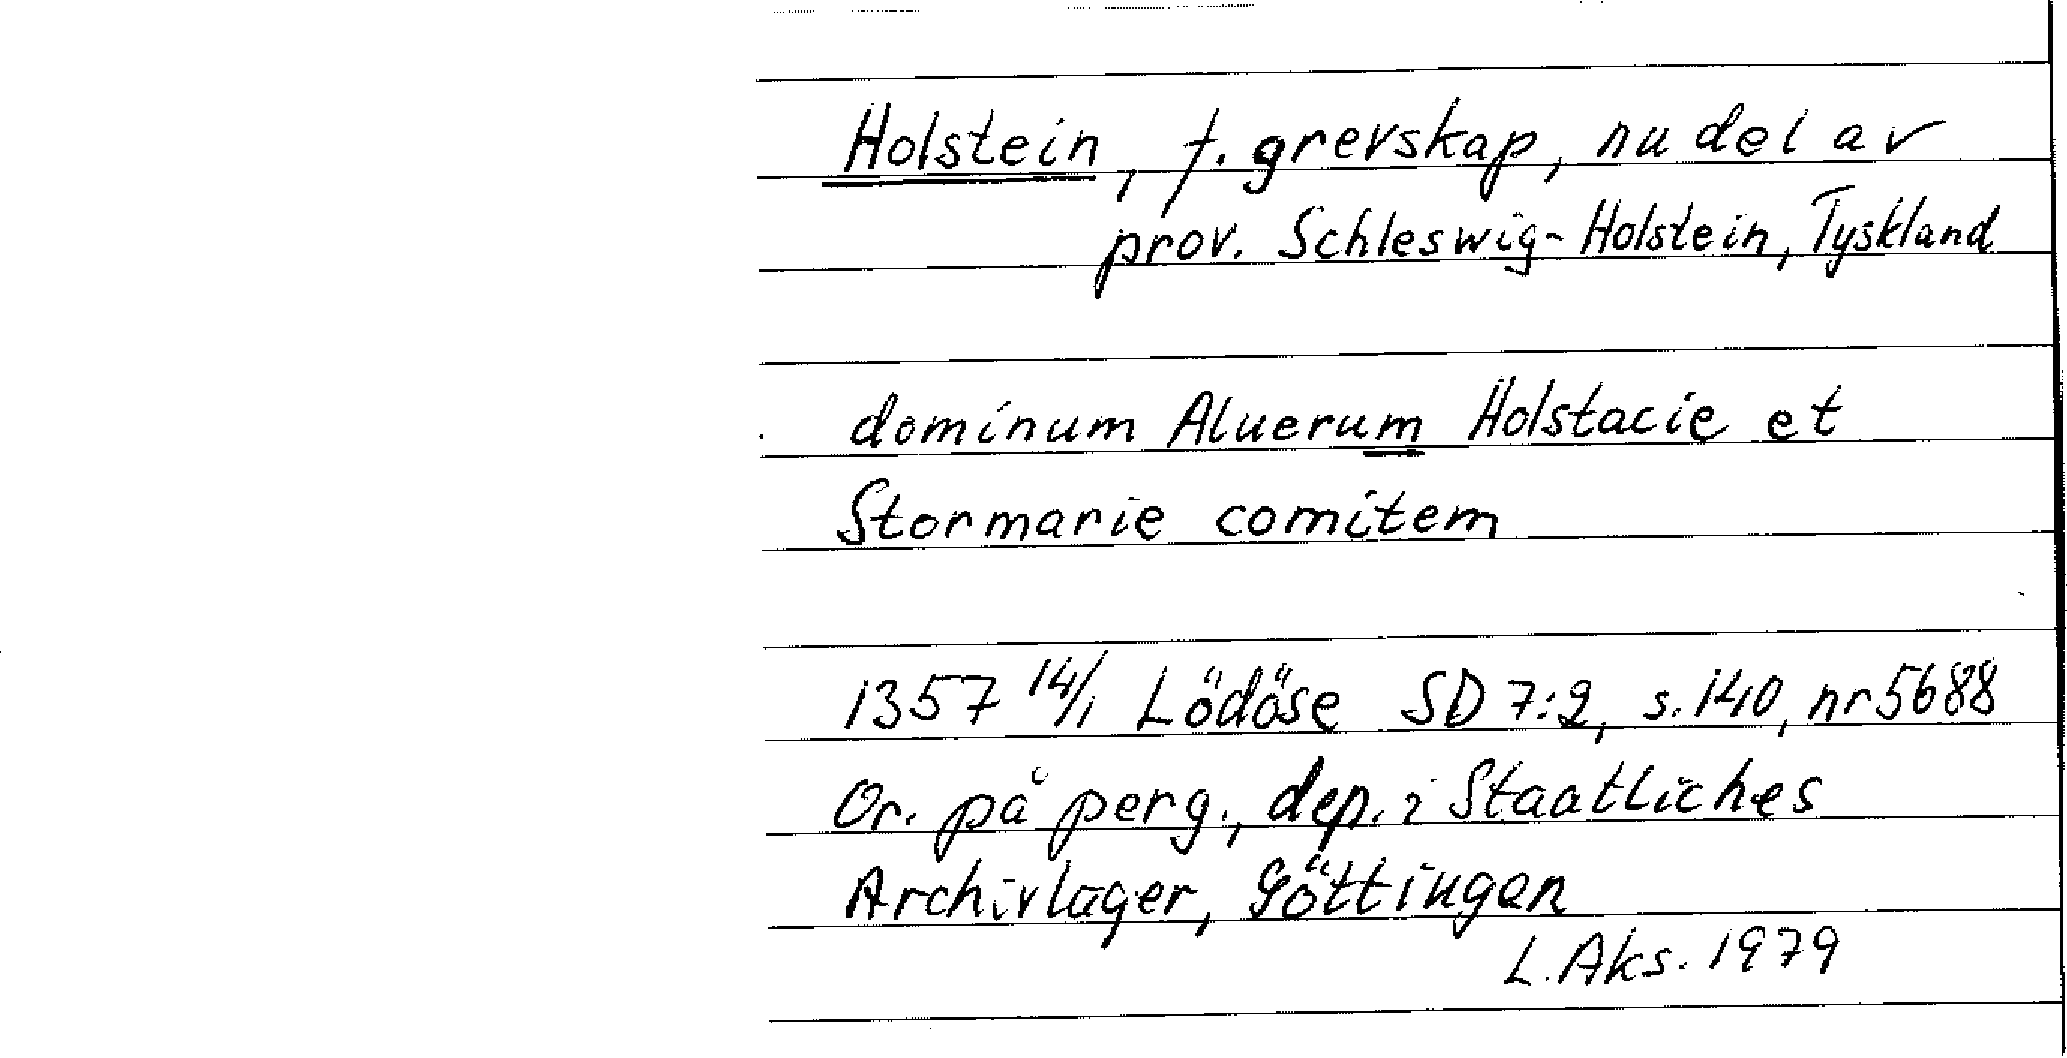 Holstein, f. grevskap, nu del av
prov. Schleswig-Holstein, Tyskland
dominum Aluerum Holstacie et
Stormarie comitem
1357 14/1 Lödöse SD 7:2, s. 140, nr 5688
Or. på perg., dep. i Staatliches
Archivlager, Göttingen
L. Aks. 1979